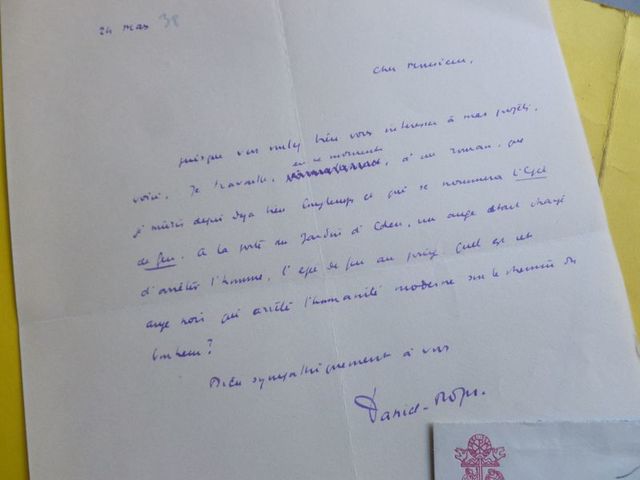 24 mars 38
Cher Monsieur,
Puisque vous voulez bien vous intéresser à mes projets,
voici. Je travaille, en ce moment, à un roman, que
je mûris depuis déjà bien longtemps et qui se nommera l'Epée
de feu. A la porte du Jardin d'Eden, un ange était chargé
d'arrêter l'homme, l'épée de feu au poing. Quel est cet
ange noir qui arrête l'humanité moderne sur le chemin du
bonheur?
Bien sympathiquement à vous
Daniel-Rops.